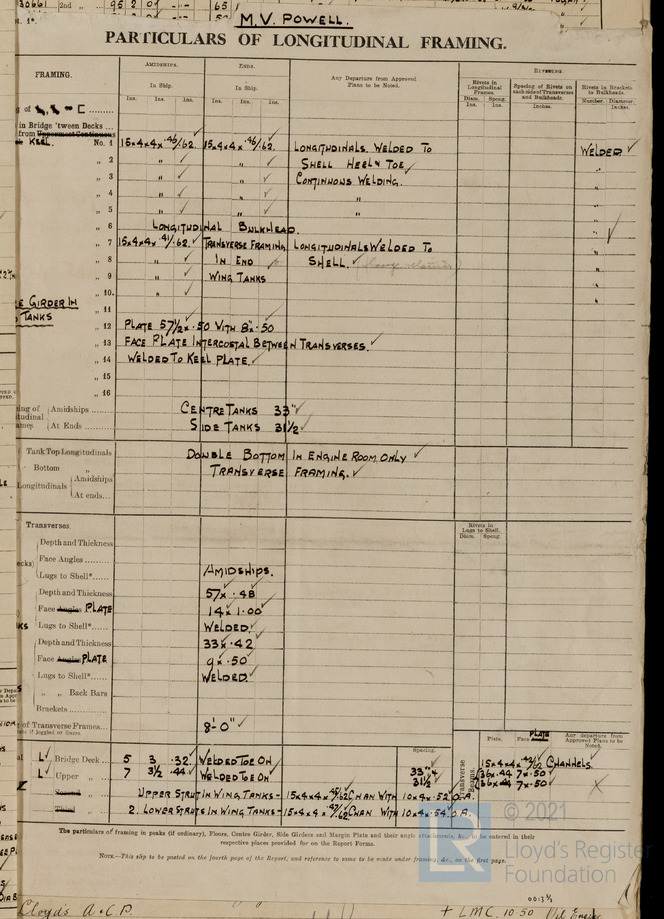 M.V. POWELL.
PARTICULARS OF LONGITUDINAL FRAMING.
FRAMING. AMIDSHIPS. ENDS. Any Departure from Approved Plans to be Noted. RIVETING.
In Ship. In Ship. Rivets in Longitudinal Frames. Spacing of Rivets on each side of Transverses and Bulkheads. Rivets in Brackets to Bulkheads.
Ins. Ins. Ins. Ins. Ins. Ins. Diam. Ins. Spcng. Ins. Inches. Number. Diameter. Inches.
in Bridge 'tween Decks ...
from Uppermost Continuous
KEEL. No. 1 15×4×4× .46/.62. ✓ 15×4×4× .46/.62. ✓ LONGITUDINALS. WELDED TO WELDED ✓
„ 2 „ ✓ „ ✓ SHELL HEEL & TOE ✓ „
„ 3 „ ✓ „ ✓ CONTINUOUS WELDING. „
„ 4 „ ✓ „ ✓ „ „
„ 5 „ ✓ „ ✓ „
„ 6 LONGITUDINAL BULKHEAD. „
„ 7 15×4×4× .41/.62. ✓ TRANSVERSE FRAMING LONGITUDINALS WELDED TO „
„ 8 „ ✓ IN END SHELL. ✓ „
„ 9 „ ✓ WING TANKS „
„ 10. „ ✓ „
GIRDER IN „ 11
TANKS „ 12 PLATE 57½ × .50 WITH 8" × .50
„ 13 FACE PLATE INTERCOSTAL BETWEEN TRANSVERSES. ✓
„ 14 WELDED TO KEEL PLATE. ✓
„ 15
„ 16
Amidships ........ CENTRE TANKS 33" ✓
At Ends ........ SIDE TANKS 31½ ✓
Tank Top Longitudinals DOUBLE BOTTOM IN ENGINE ROOM ONLY ✓
Bottom „ TRANSVERSE FRAMING. ✓
Longitudinals Amidships
At ends...
Transverses. Rivets in Lugs to Shell.
Diam. Spcng.
Depth and Thickness
Face Angles ......
Lugs to Shell*...... AMIDSHIPS.
Depth and Thickness 57 × .48
Face Angles PLATE 14 × 1.00 ✓
Lugs to Shell*...... WELDED ✓
Depth and Thickness 33 × .42
Face Angles PLATE 9 × .50 ✓
Lugs to Shell*...... WELDED ✓
„ „ Back Bars
Brackets.........
of Transverse Frames... 8'-0" ✓
Plate. Face PLATE Any departure from Approved Plans to be Noted.
Spacing.
L ✓ Bridge Deck... 5 3 .32 ✓ WELDED TOE ON 33" ✓ 15×4×4× CHANNELS.
L ✓ Upper „ 7 3½ .44 ✓ WELDED TOE ON 31½ ✓ 36×.44 7×.50 ✓
Transverse Beams 36×.44 7×.50 ✓
Second „ UPPER STRUT IN WING TANKS- 15×4×4× CHAN WITH 10×4×.52 O.A.
Third „ 2. LOWER STRUTS IN WING TANKS- 15×4×4× CHAN WITH 10×4×.54 O.A.
The particulars of framing in peaks (if ordinary), Floors, Centre Girder, Side Girders and Margin Plate and their angle attachments, &c., to be entered in their
respective places provided for on the Report Forms.
NOTE.—This slip to be posted on the fourth page of the Report, and reference to same to be made under framing, &c., on the first page.
© 2021
LR
Lloyd's Register
Foundation
Lloyds A & C.P. + LMC. 10.50